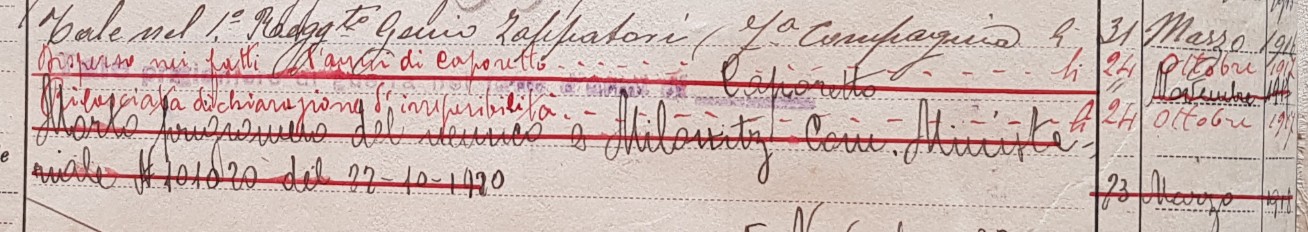 Tale nel 1.° Reggto Genio Zappatori (7a Compagnia li 31 Marzo 191
Disperso nei fatti d'armi di Caporetto li 24 Ottobre 191
Caporetto Novembre
Rilasciata dichiarazione d'irreperibilità li 24 Ottobre 191
Morto prigioniero del nemico a Milowitz Com. Ministe-
riale N 101020 del 22-10-1920 23 Marzo 191